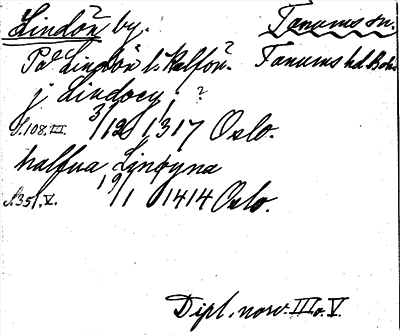 Lindön by. Tanums sn.
På Lindön l. Kalfön? Tanums hd. Boh.
j Lindoey, ?
S. 108. III. 3/12 1317 Oslo.
halfua Lindyna
S. 351. V. 19/1 1414 Oslo.
Dipl. norv. III o. V.